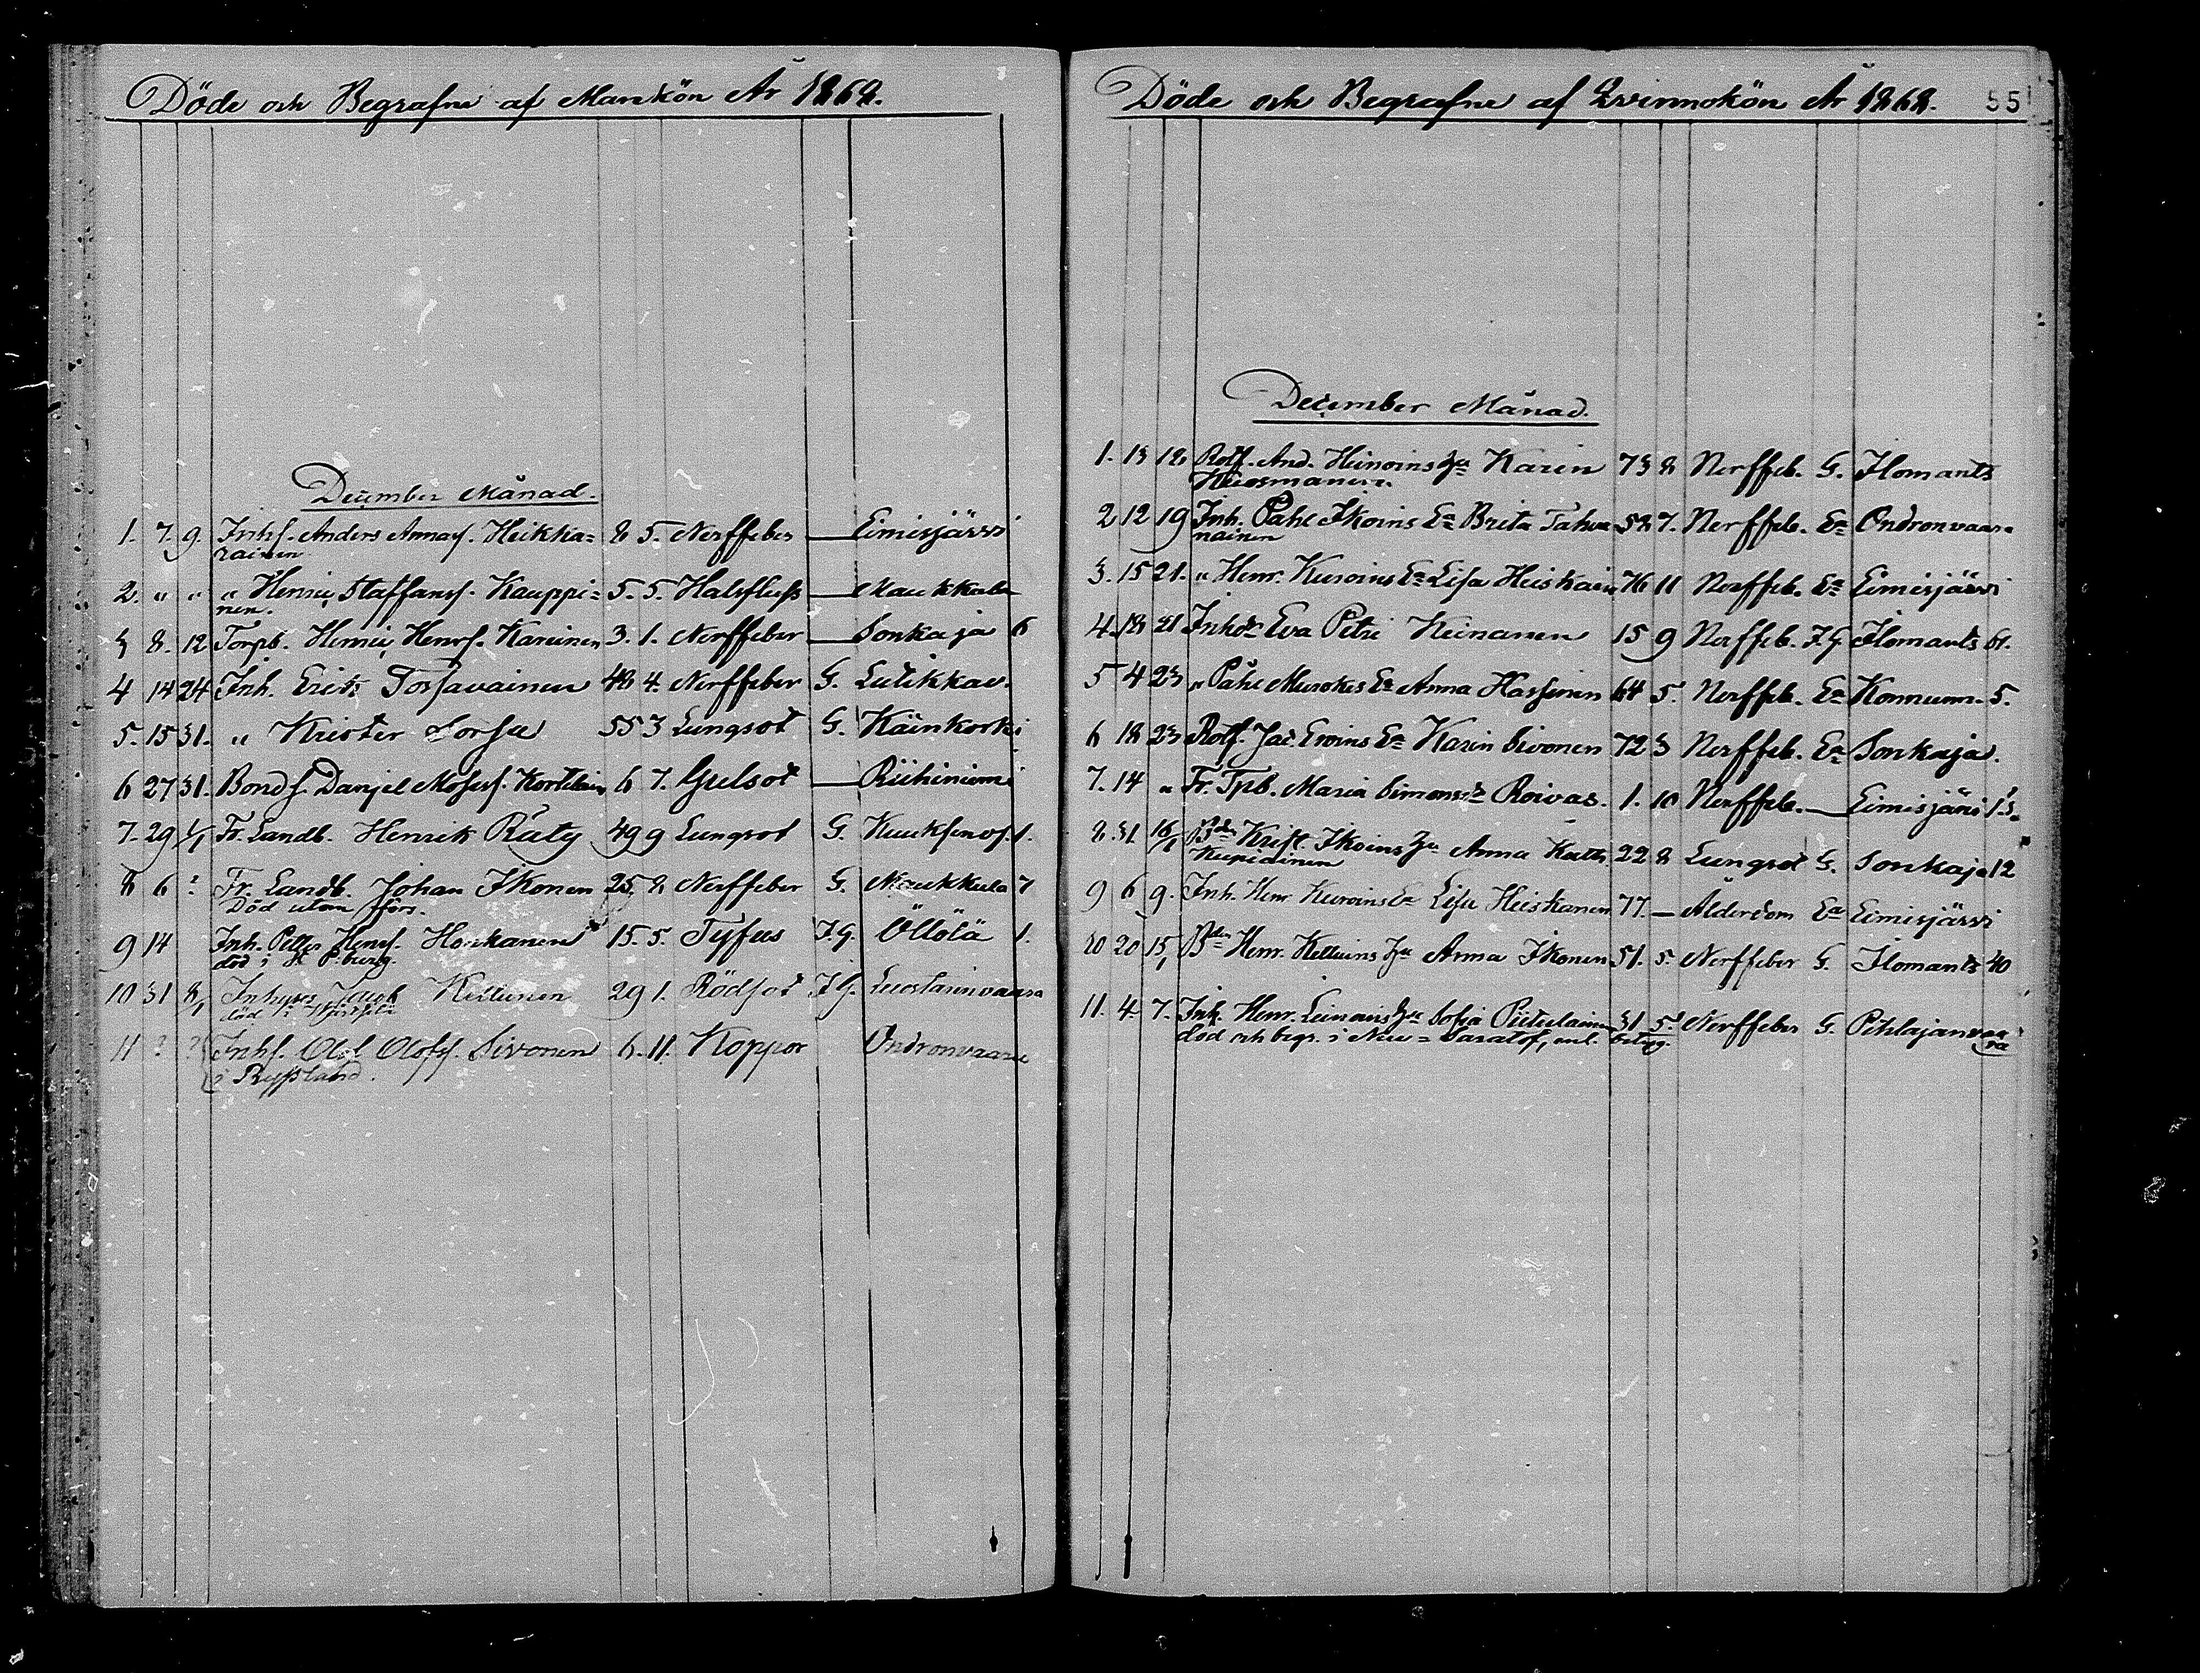 Döde och Begrafne af Mankön År 1868.
December Månad.
1. 7. 9. Inhs. Anders Annas. Heikka= 8 5. Nerffeber — Eimisjärvi
rainen
2. " " " Henric Staffanss. Kauppi= 5. 5. Halsfluss — Maukkula
nen.
3 8. 12 Torpb. Henric Henrs. Kareinen 3. 1. Nerffeber — Sonkaja 6
4 14 24 Inh. Eric Torsavainen 48 4. Nerffeber G. Lutikkav.
5. 15 31. " Krister Sorsa 55 3 Lungsot G. Känkorki
6 27 31. Bonds. Danjel Moses. Kortelain 6 7. Gulsot — Riihiniemi
7. 29 1/1 Fr. Landb. Henrik Räty 49 9 Lungsot G. Kuuksenv. 1.
8 6 ? Fr. Landb. Johan Ikonen 25 8 Nerffeber G. Maukkula 7
Död utom förs.
9 14 Inh. Petter Henrs. Honkanen 15. 5. Tyfus I.G. Öllölä 1.
död i St P.burg.
10 31 8/1 Inhyses Jacob Kellunen 29 1. Rödsot I.G. Luostarinvaara
död i
11 ? ? Inhs. Olof Olofs. Sivonen 6. 11. Koppor Ondronvaara
i Ryssland.
Döde och Begrafne af Qvinnokön År 1868. 55
December Månad.
1. 13 18 Rotf. And. Hirvoins Hu Karin 73 8 Nerffeb. G. Ilomants
Huosmanen
2 12 19 Inh. Påhl Ikoins Ea Brita Tahva 58 7. Nerffeb. Ea Ondronvaara
nainen
3. 15 21. " Henr. Kurvins Ea Lisa Heiskain 76 11 Nerffeb. Ea Eimisjärvi
4. 18 21 Inhdr Eva Petri Heinanen 15 9 Nerffeb. I.G. Ilomants 61.
5 4 23 " Påhl Murokes Ea Anna Hassinen 64 5. Nerffeb. Ea Konnunn. 5.
6 18 23 Rotf. Jac. Ervins Ea Karin Sivonen 72 3 Nerffeb. Ea Sonkaja.
7. 14 " Fr. Tpb. Maria Simonsdr Roivas. 1. 10 Nerffeb. — Eimisjärvi 13.
8 31 16/1 Bdn Krist. Ikoins Hu Anna Kath. 22 8 Lungsot G. Sonkaja 12
Kupiainen
9 6 9. Inh. Henr Kurvins Ea Lisa Heiskanen 77. — Ålderdom Ea Eimisjärvi
10 20 15/1 Bdn Henr. Kelluins Hu Anna Ikonen 51. 5. Nerffeber G. Ilomants 40
11. 4. 7. Inh. Henr. Leinoins Hu Sofia Piitulainen 31 5. Nerffeber G. Pihlajanvaa
död och begr. i Neu=Saratof, enl. betyg. ra